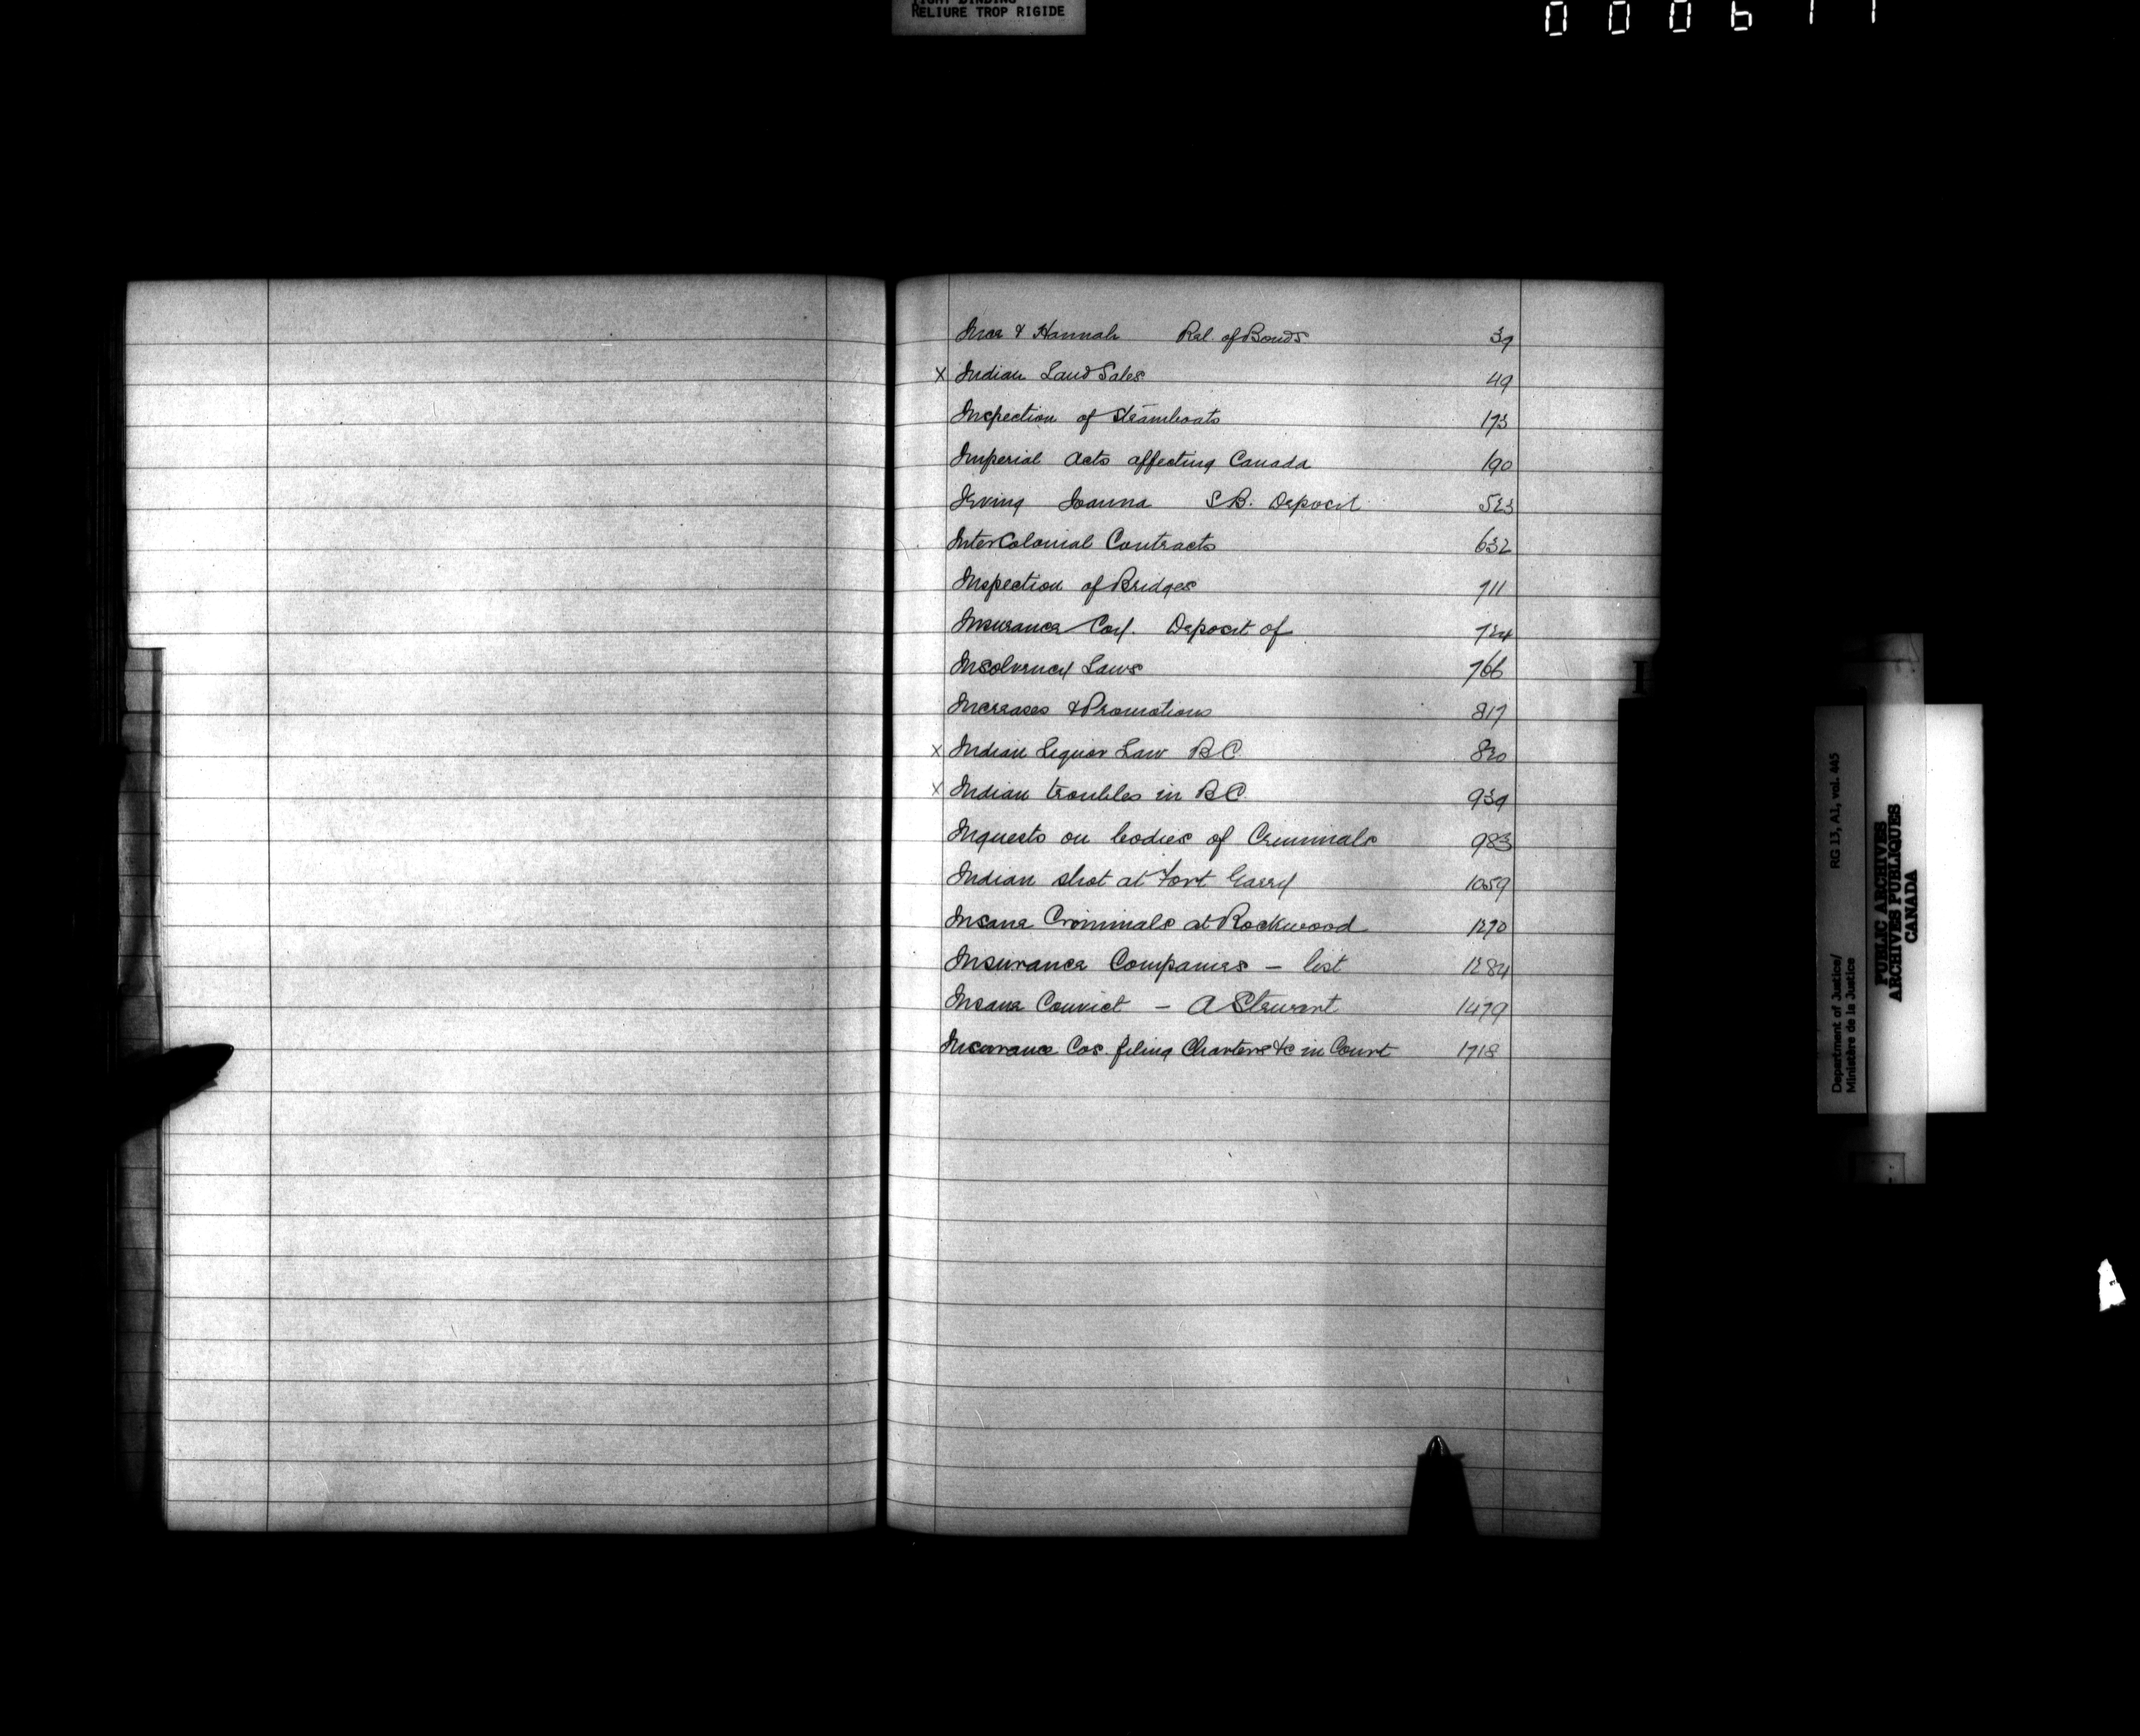 TIGHT BINDING
RELIURE TROP RIGIDE
& Hannah Rel. of Bonds 37
x Indian Land Sales 49
Inspection of Steamboats 173
Imperial Acts affecting Canada 190
Irving Joanna S.B. Deposit 523
InterColonial Contracts 632
Inspection of Bridges 711
Insurance Coy. Deposit of 724
Insolvency Laws 766
Increases & Promotions 817
x Indian Liquor Law BC 820
x Indian troubles in BC. 939
Inquests on bodies of Criminals 983
Indian shot at Fort Garry 1059
Insane Criminals at Rockwood 1270
Insurance Companies – list 1284
Insane Convict – A Stewart 1479
Insurance Cos. filing Charters &c in Court 1718
I
Department of Justice/ RG 13, A1, vol. 445
Ministère de la Justice
PUBLIC ARCHIVES
ARCHIVES PUBLIQUES
CANADA